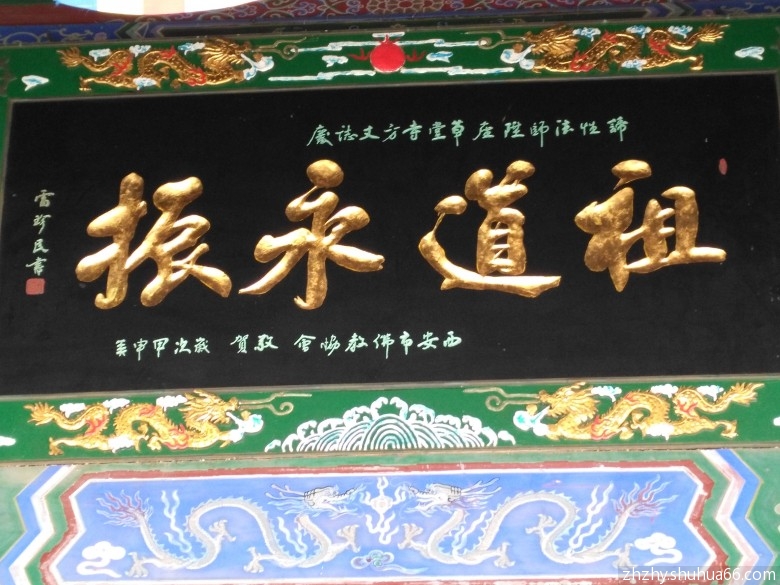 諦性法師陞座草堂寺方丈誌慶
祖道永振
西安市佛教協會 敬賀 歲次甲申
雷珍民書
zhzhy.shuhua66.com